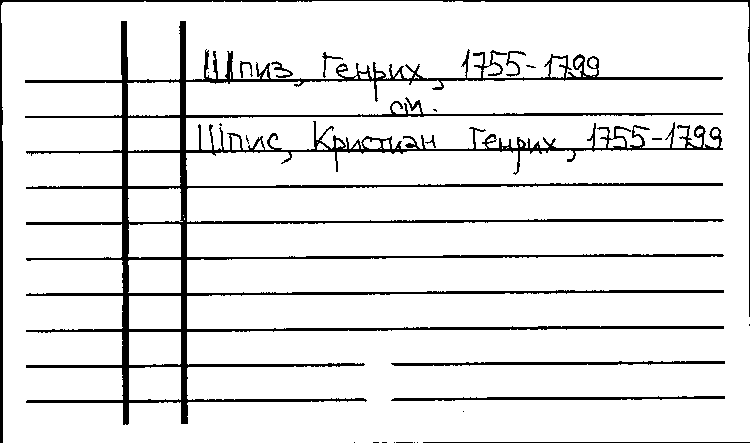 Шпиз, Генрих, 1755-1799
см.
Шпис, Кристиан Генрих, 1755-1799